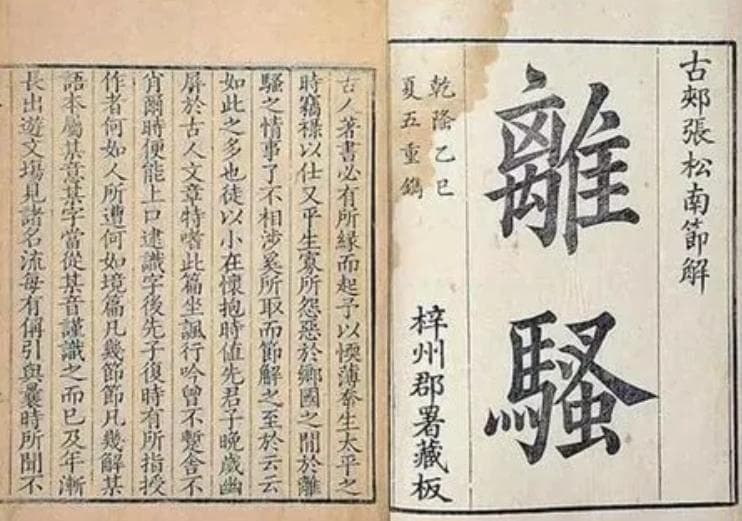 古郟張松南節解
離騷
乾隆乙巳
夏五重鐫
梓州郡署藏板
古人著書必有所緣而起予以愞薄奮生太平之
時竊祿以仕又平生寡所怨惡於鄉國之間於離
騷之情事了不相涉奚所取而節解之至於云云
如此之多也徒以小在懷抱時值先君子晚歲幽
屏於古人文章特嗜此篇坐諷行吟曾不蹔舍不
肖爾時便能上口逮識字後先子復時有所指授
作者何如人所遭何如境篇凡幾節節凡幾解某
語本屬某意某字當從某音謹識之而已及年漸
長出遊文場見諸名流每有偁引與曩時所聞不